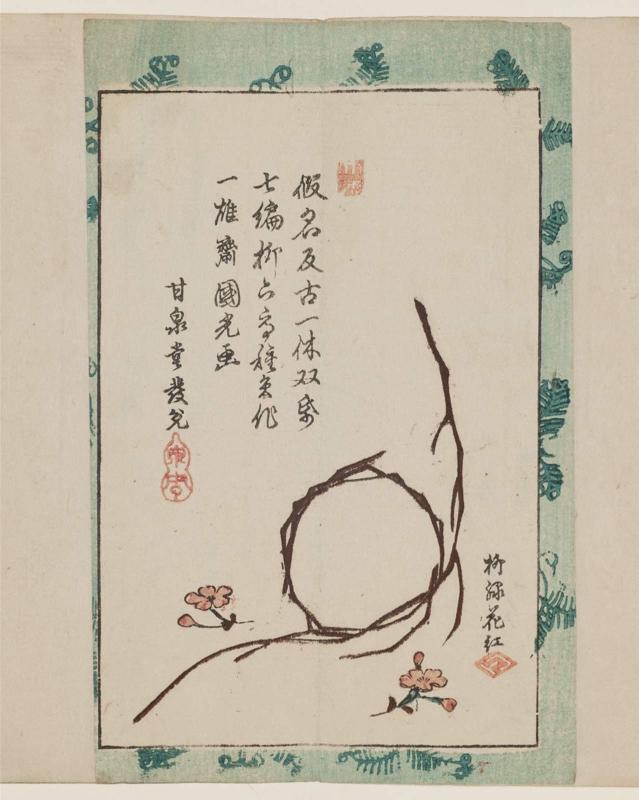 假名反古一休双帋
七編柳下亭種員作
一雄齋國光画
甘泉堂發兌
柳緑花紅